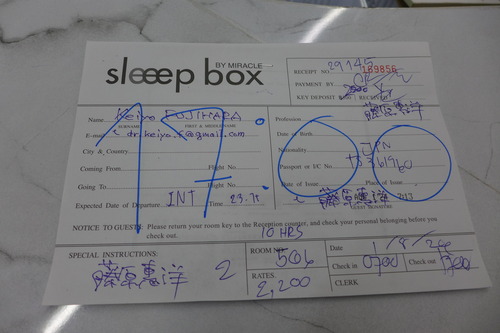 BY MIRACLE
sleeep box
RECEIPT NO. 29145 189856
PAYMENT BY
KEY DEPOSIT RECEIVED
藤原惠洋
Name Keiyo FUJIHARA
SURNAME FIRST & MIDDLE NAME
Profession
E-mail
Date of Birth
City & Country
Nationality JPN
Coming From Flight No.
Passport or I/C No.
Going To Flight No.
Date of Issue Place of Issue
Expected Date of Departure INT Time
藤原惠洋
GUEST SIGNATURE
17:00
NOTICE TO GUEST: Please return your room key to the Reception counter, and check your personal belonging before you
check out. 10 HRS
SPECIAL INSTRUCTIONS:
藤原惠洋 2
ROOM No. 506
RATES. 2,200
Date 1/9/24
Check in 0700 Check out 1700
CLERK